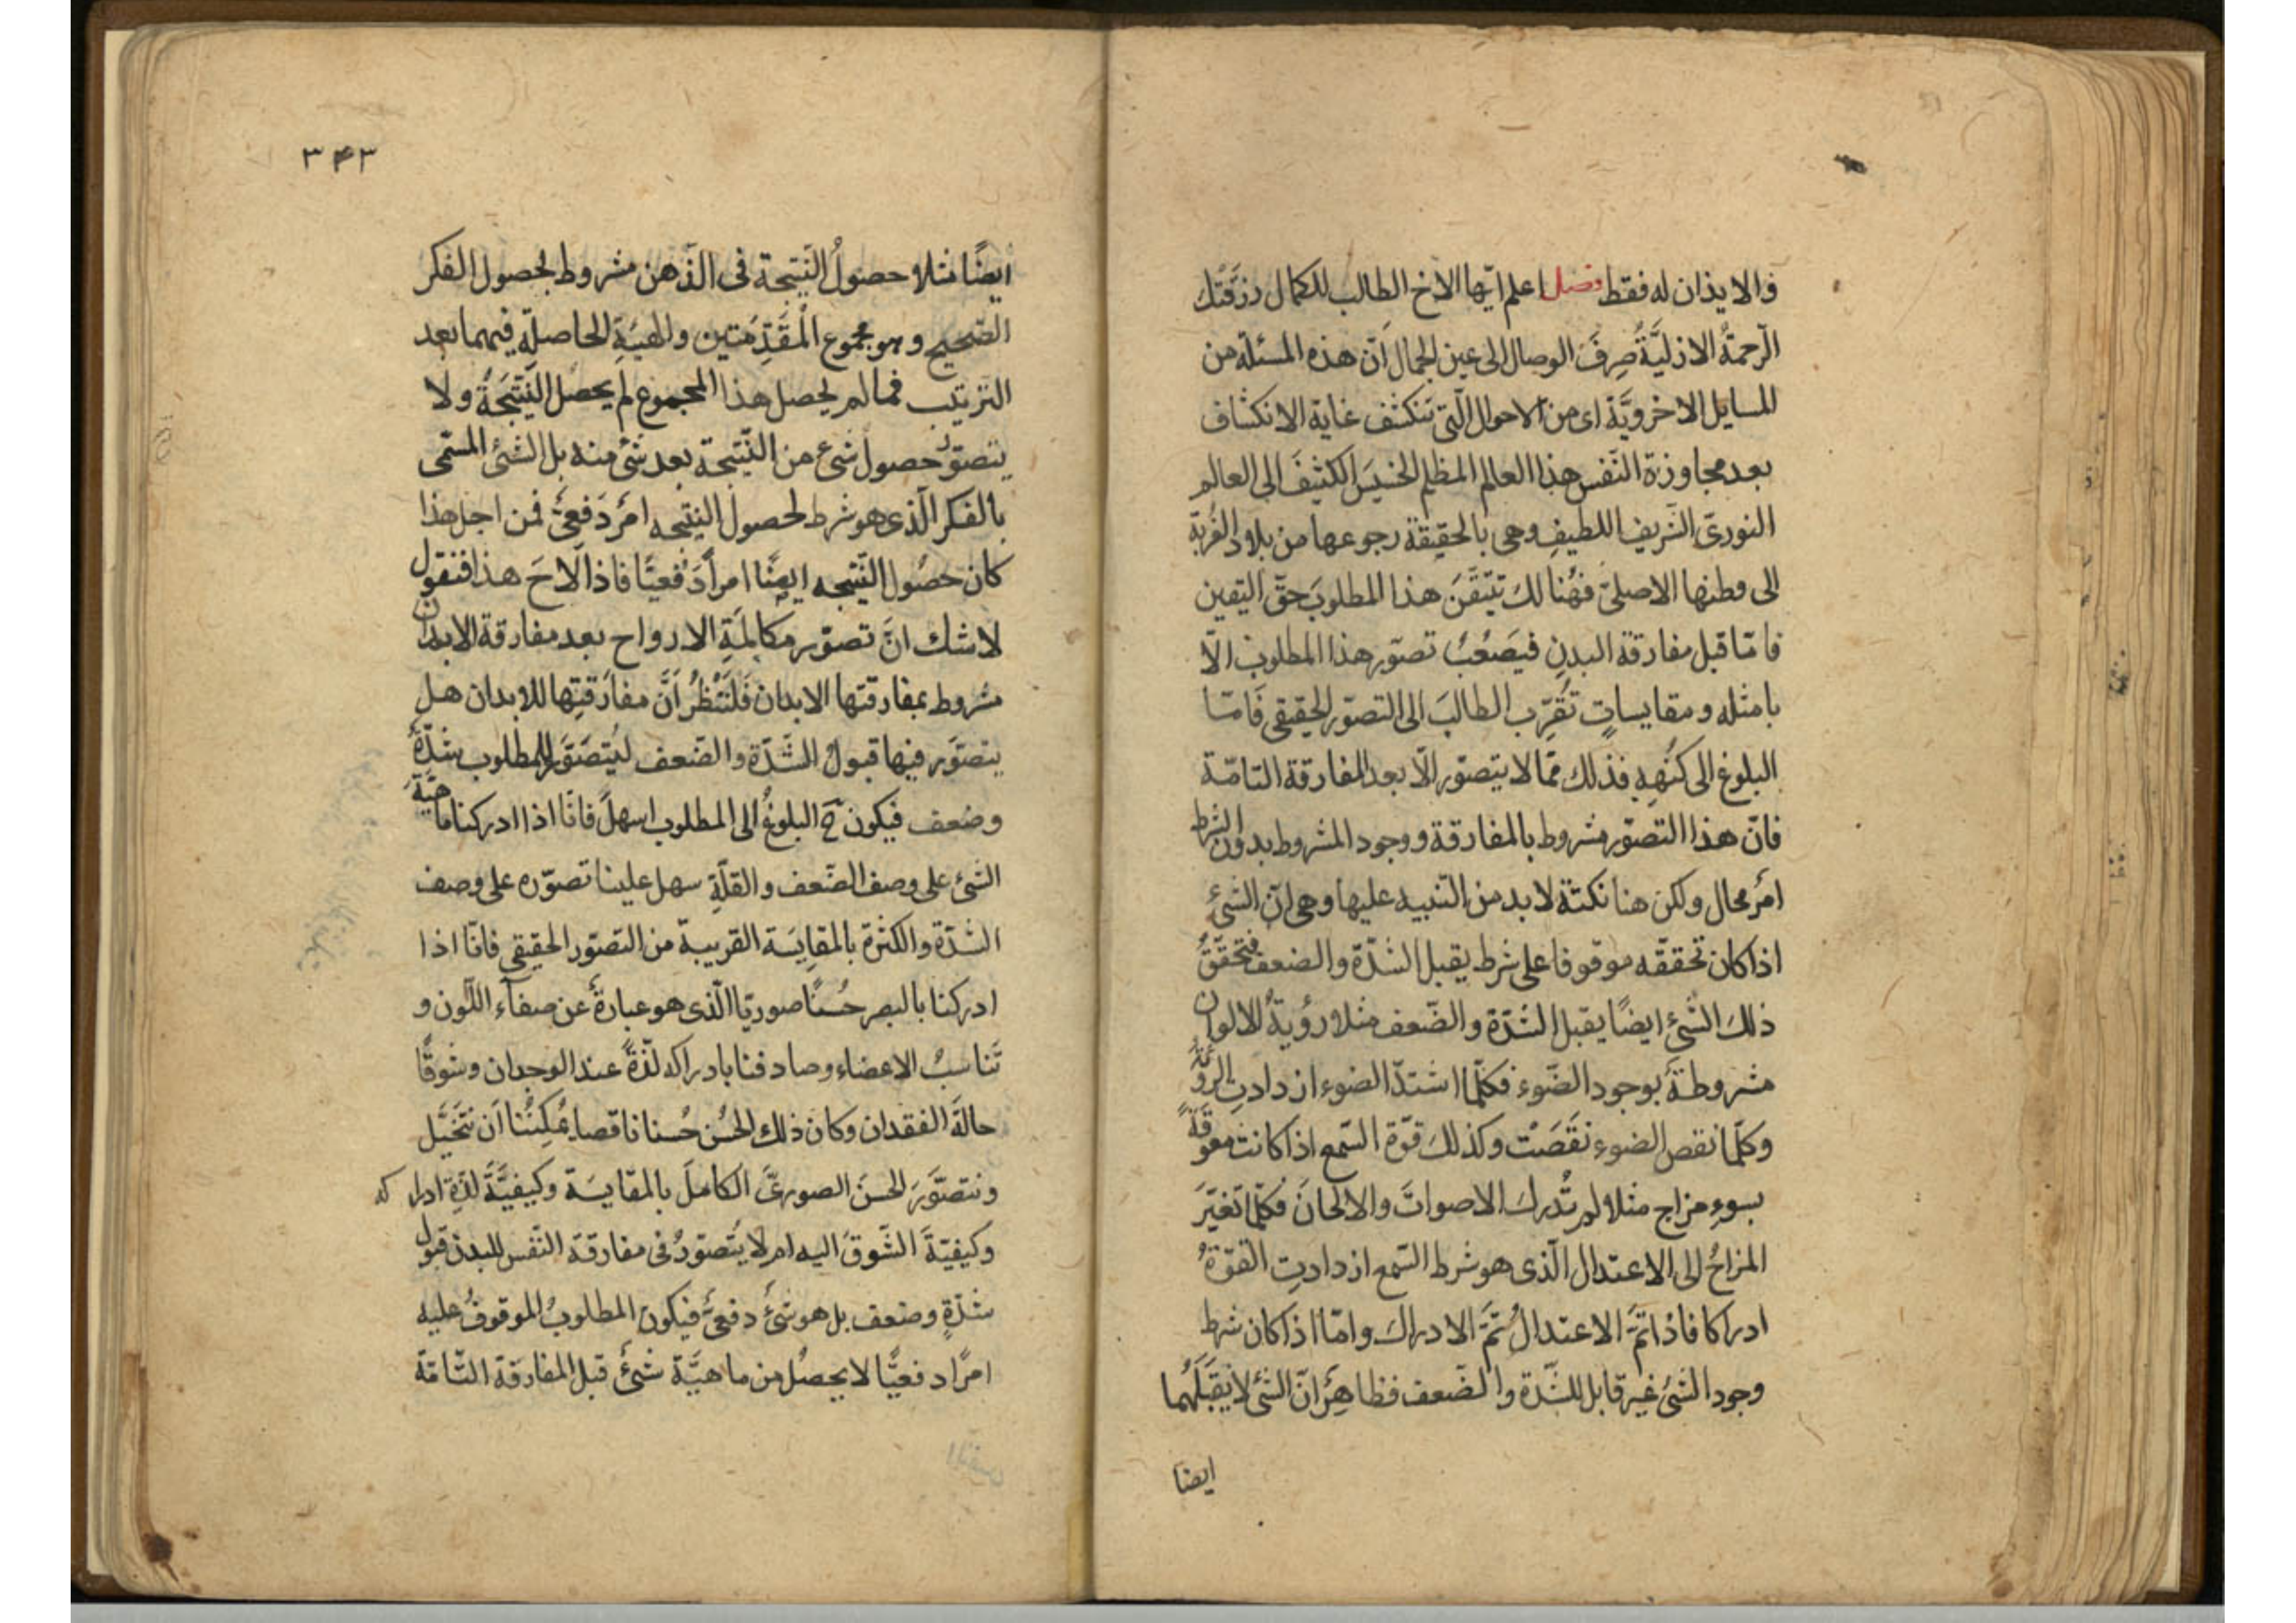 والايذان له فقط فصل اعلم ايّها الاخ الطالب للكمال رزقتك
الرّحمةُ الازليَّةُ صِرفَ الوصال الى عين الجمال انّ هذه المسئلة من
المسايل الاخرويَّة اى من الاحوال الّتى تنكشف غاية الانكشاف
بعد مجاوزة النّفس هذا العالم المظلم الخسيسَ الكثيفَ الى العالم
النورىّ الشّريف اللطيفِ وهى بالحقيقة رجوعها من بلاد الغربة
الى وطنها الاصلىّ فهُنالك تتيّقنَ هذا المطلوبَ حقّ اليقين
فامّا قبل مفارقة البدنِ فيَصعُبُ تصوّر هذا المطلوب الّا
بامثله ومقايساتٍ تُقرّب الطالبَ الى التصوّر الحقيقى فامّا
البلوغ الى كُنْهِهِ فذلك ممّا لا يتصوّر الّا بعد المفارقة التامّة
فانّ هذا التصوّر مشروط بالمفارقة ووجود المشروط بدون الشرط
امرٌ محال ولكن هنا نكتة لا بد من التّنبيه عليها وهى انّ الشىءٔ
اذا كان تحققّه موقوفا على شرط يقبل الشدّة والضعف فتحقّقُ
ذلك الشّىءٔ ايضًا يقبل الشدّة والضّعف مثلا رؤيةُ الالوان
مشروطة بوجود الضّوء فكلّما اشتدّ الضوء ازدادتِ الرؤية
وكلّما نقص الضوء نقَصَتْ وكذلك قوّة السّمع اذا كانت معوقةً
بسوءِ مزاج مثلا لم تُدرك الاصواتَ والالحانَ فكلّما تغيّرَ
المزاجُ الى الاعتدال الّذى هو شرط السّمع ازدادتِ القوّةُ
ادراكا فاذا تمَّ الاعتدالُ تمَّ الادراك وامّا اذا كان شرط
وجود الشىءٔ غير قابل للشّدة والضّعف فظاهرٌ انّ الشىءٔ لا يقبَلُهُما
ايضا
٣٤٣
ايضًا مثلا حصولُ النّتيجة فى الذّهن مشروط لحصول الفكر
الصّحيح وهو مجموع المُقدِّمَتين والهيئةِ الحاصلة فيهما بعد
الترتيب فما لم يحصل هذا المجموع لم يحصل النّتيجَةُ ولا
يتصوّر حصول شىء من النّتيجة بعد شىءٔ منه بل الشىءٔ المسّمى
بالفكر الّذى هو شرط لحصول النتيجه امرٌ دَفعىٌّ فمن اجل هذا
كان حصُول النّتيجه ايضًا امراً دَفعيًّا فاذا لاحَ هذا فنقول
لا شك انَّ تصوّر مكالمَةِ الارواح بعد مفارقة الابدان
مشروط بمفارقتها الابدان فَلْنَنْظُرْ اَنَّ مفارقتِها للابدان هل
يتصوّر فيها قبولُ الشّدّة والضّعف ليُتصَوَّر للمطلوب شدّةٌ
وضعف فيكون ح البلوغُ الى المطلوب اسهلَ فانّا اذا ادركنا ماهيّة
الشىءٔ على وصف الضّعف والقلّةِ سهل علينا تصوّره على وصف
الشدّة والكثرة بالمقايَسَة القريبة من التصوّر الحقيقى فانّا اذا
ادركنا بالبصر حُسنًا صوريّا الّذى هو عبارةٌ عن صفآء اللّون و
تَناسبُ الاعضاء وصادفنا بادراكه لذّةً عند الوجدان وشوقًا
حالةَ الفقدان وكان ذلك الحُسن حُسنا ناقصا يُمكِنُنا اَن نتَخيَّل
ونتصَوَّرَ الحسنَ الصورىَّ الكاملَ بالمقايسَة وكيفيَّةَ لذّةِ ادراكه
وكيفيّةَ الشّوقِ اليه ام لا يُتصوّرُ فى مفارقة النّفس للبدن قبول
شدّةٍ وضعف بل هو شىءٌ دفعىٌّ فيكون المطلوبُ الموقوفُ عليه
امرًا دفعيًّا لا يحصُل من ماهيَّة شىءٌ قبل المفارقة التّامّة